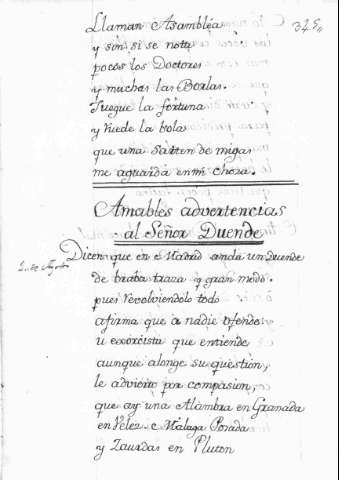 Llaman Asamblea
y son si se nota
pocos los Doctores
y muchas las Borlas.
Juegue la fortuna
y ruede la bola
que una Sarten de migas
me aguarda en mi choza.
Amables advertencias
al Señor Duende
Dicen que en Madrid anda un Duende
de braba traza y gran modo.
pues revolviendolo todo
afirma que a nadie ofende
u exorcista que entiende
aunque alonge su question,
le advierto por compasion,
que ay una Alambra en Granada
en Velez-Malaga Posada
y Zaurdas en Pluton